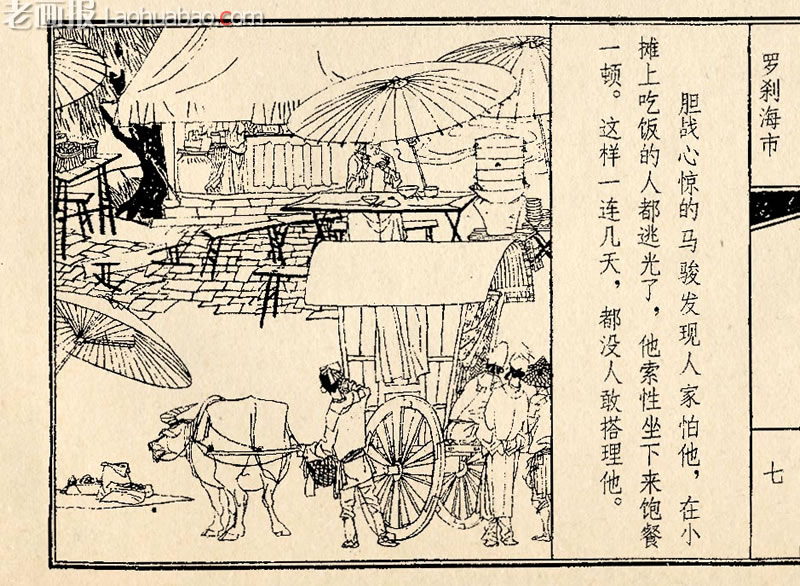 老画报 Laohuabao.com
罗刹海市
胆战心惊的马骏发现人家怕他，在小
摊上吃饭的人都逃光了，他索性坐下来饱餐
一顿。这样一连几天，都没人敢搭理他。
七